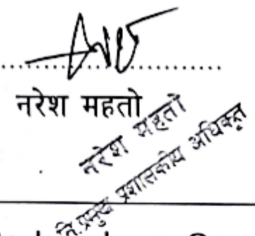 नरेश महतो
नरेश महतो
नि.प्रमुख प्रशासकीय अधिकृत